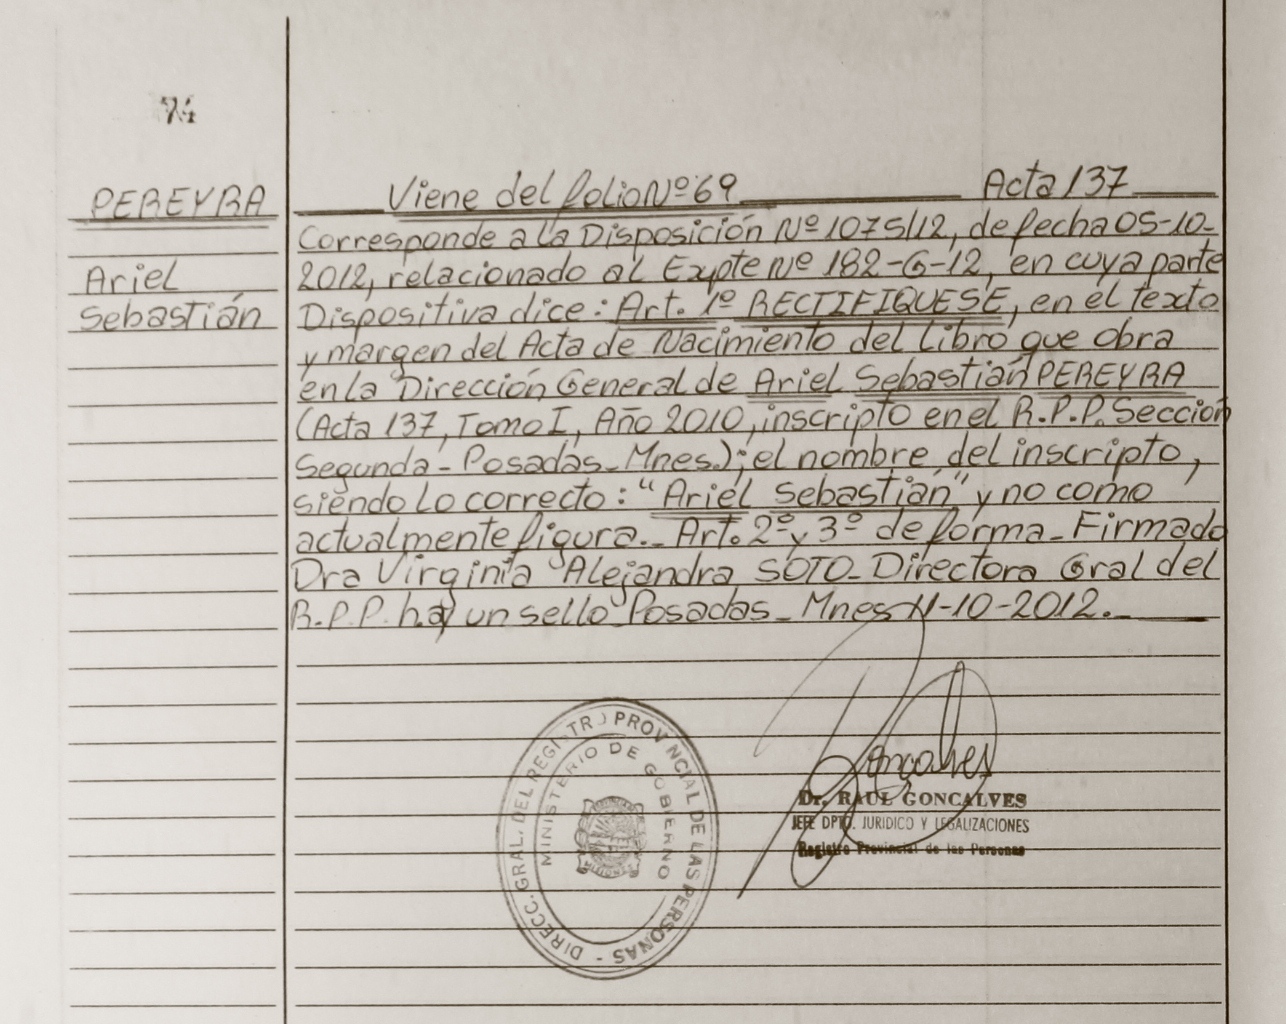 74
PEREYRA
Ariel
Sebastián
Viene del folio Nº 69 Acta 137
Corresponde a la Disposición Nº 1075/12, de fecha 05-10-
2012, relacionado al Expte Nº 182-G-12, en cuya parte
Dispositiva dice: Art. 1º RECTIFIQUESE, en el texto
y margen del Acta de Nacimiento del Libro que obra
en la Dirección General de Ariel Sebastián PEREYRA
(Acta 137, Tomo I, Año 2010, inscripto en el R.P.P. Sección
Segunda - Posadas - Mnes.); el nombre del inscripto,
siendo lo correcto: "Ariel Sebastián" y no como
actualmente figura. - Art. 2º y 3º de forma - Firmado
Dra Virginia Alejandra SOTO - Directora Gral del
R.P.P. hay un sello Posadas - Mnes 11-10-2012. -
DIRECC. GRAL. DEL REGISTRO PROVINCIAL DE LAS PERSONAS -
MINISTERIO DE GOBIERNO
Goncalves
Dr. RAUL GONCALVES
JEFE DPTO. JURIDICO Y LEGALIZACIONES
Registro Provincial de las Personas